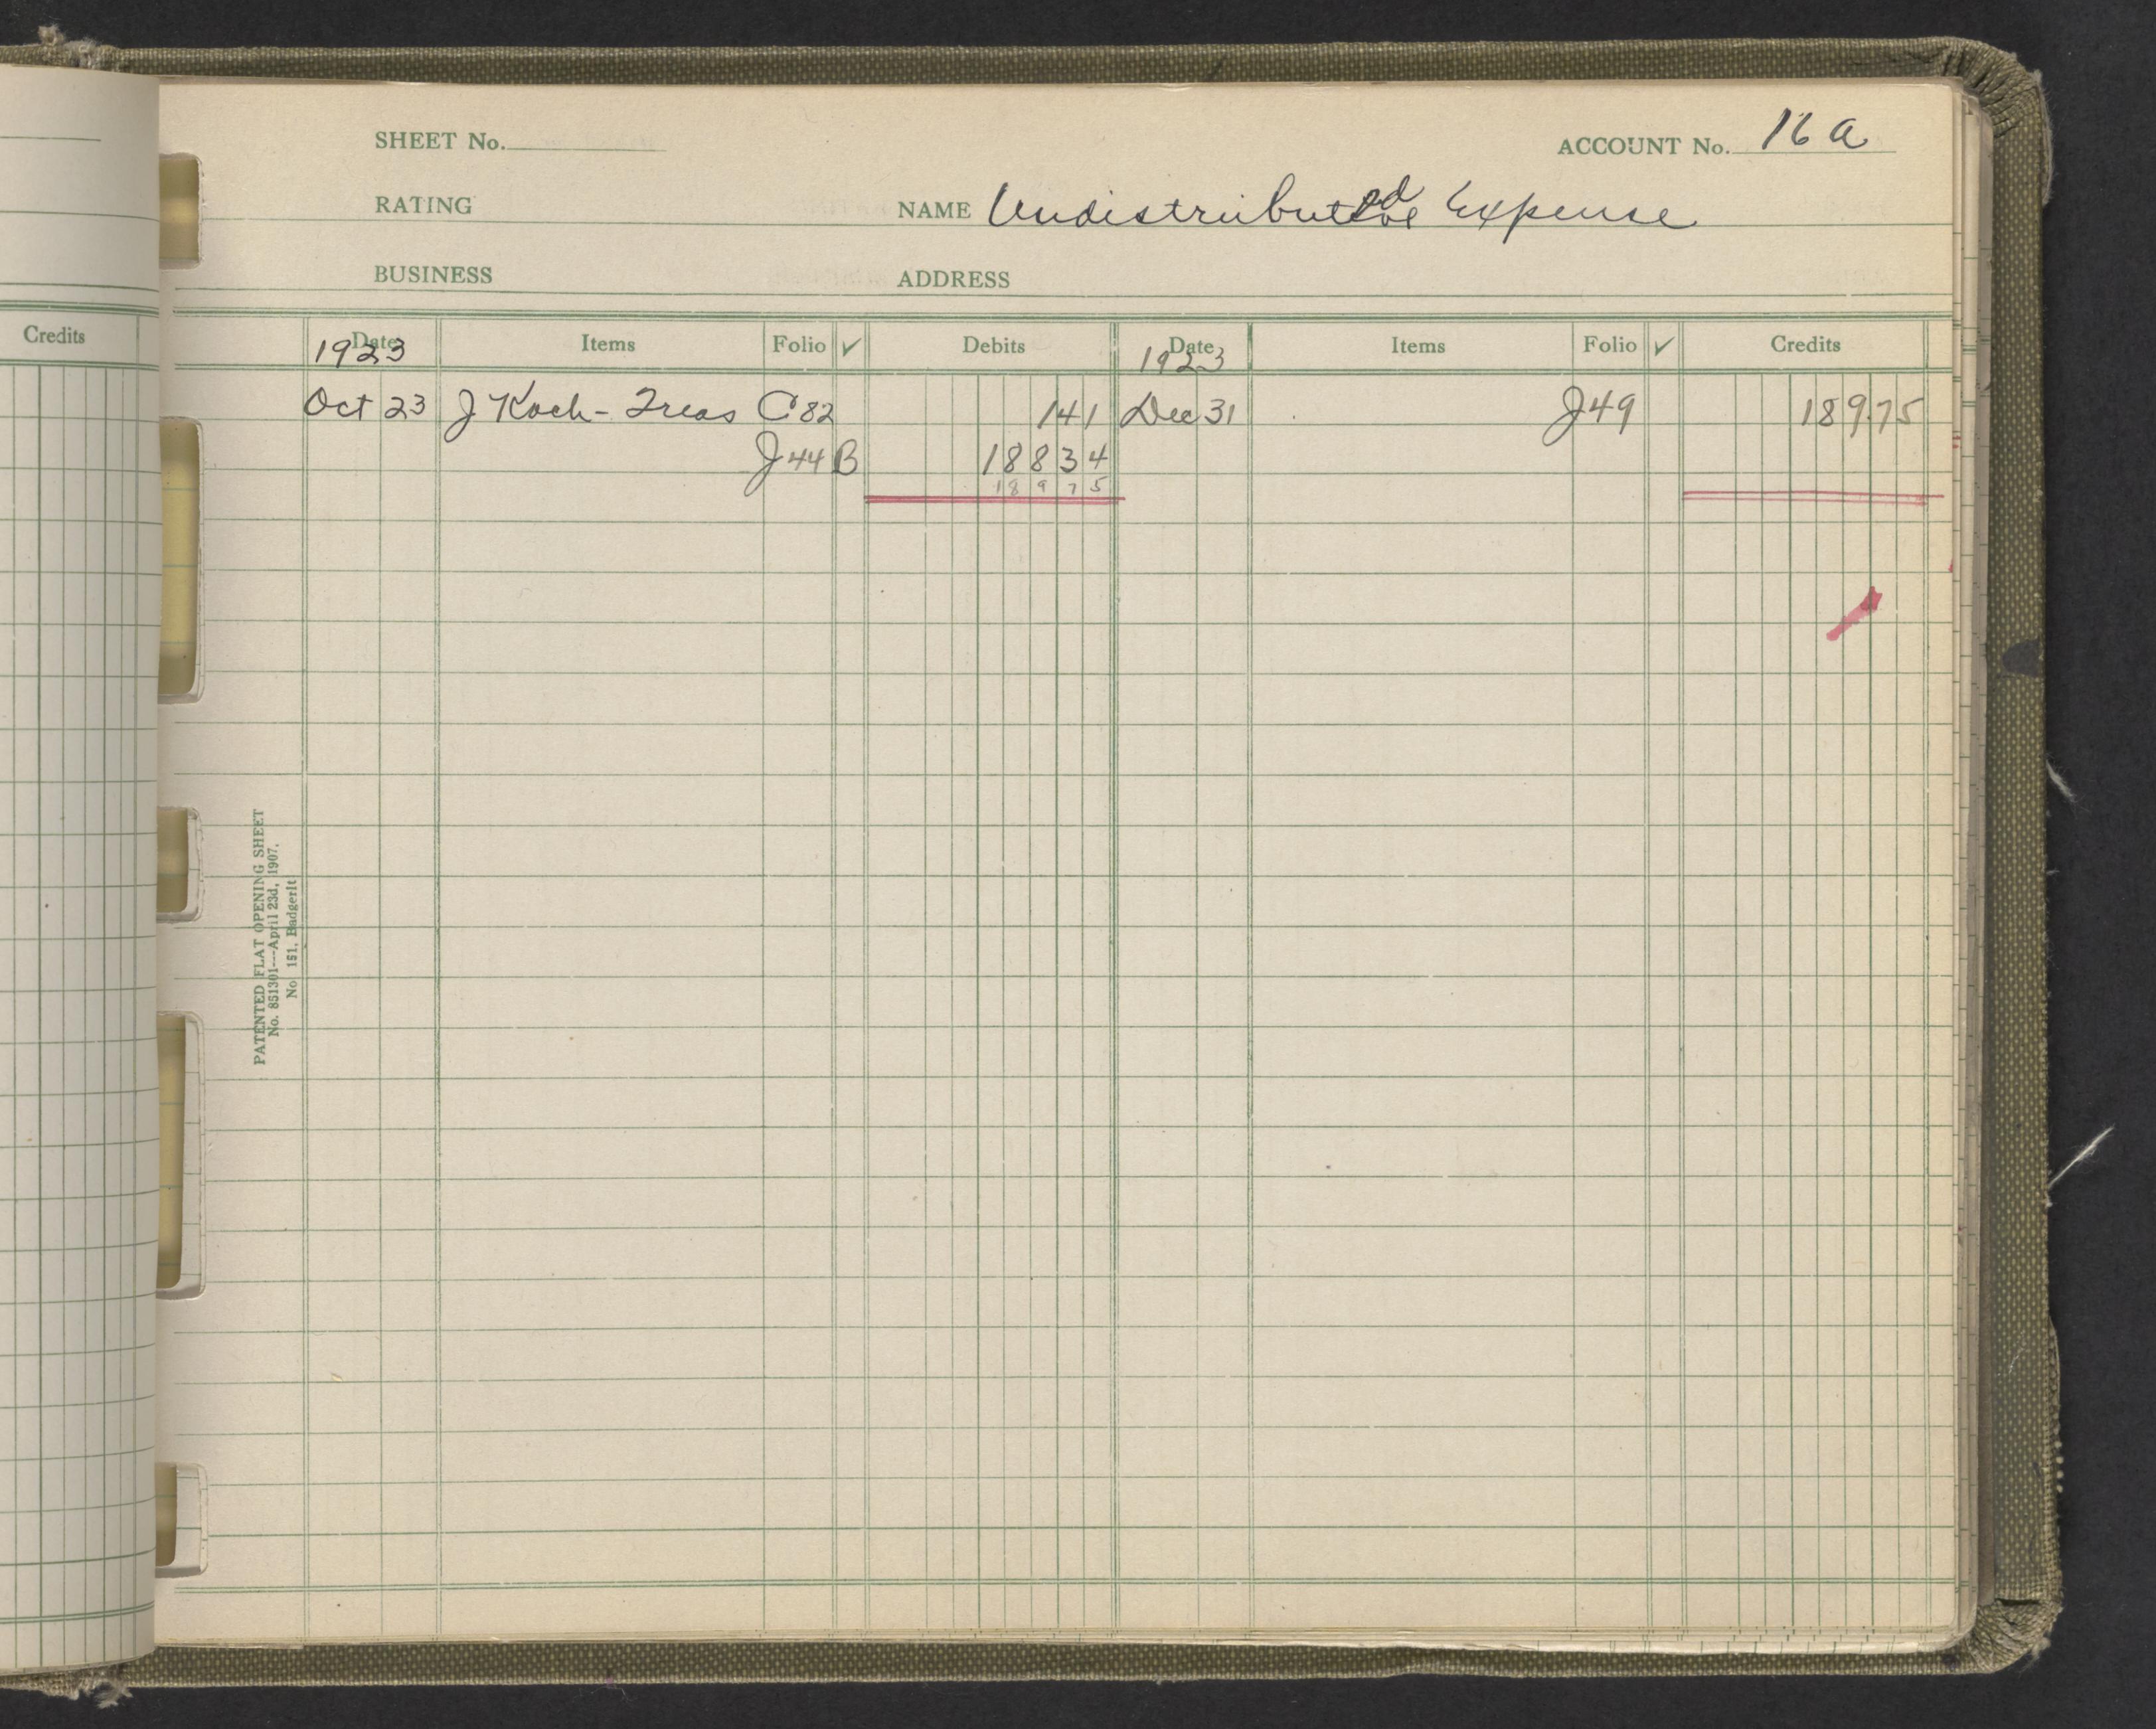 Credits
SHEET No.
ACCOUNT No. 16 a
RATING
NAME Undistributed Expense
BUSINESS
ADDRESS
Date Items Folio ✓ Debits Date Items Folio ✓ Credits
1923 1923
Oct 23 J Koch - Treas C 82 141 Dec 31 J 49 189.75
J 44 B 188 34
189 75
PATENTED FLAT OPENING SHEET
No. 851301---April 23d, 1907.
No 151, Badgerlt